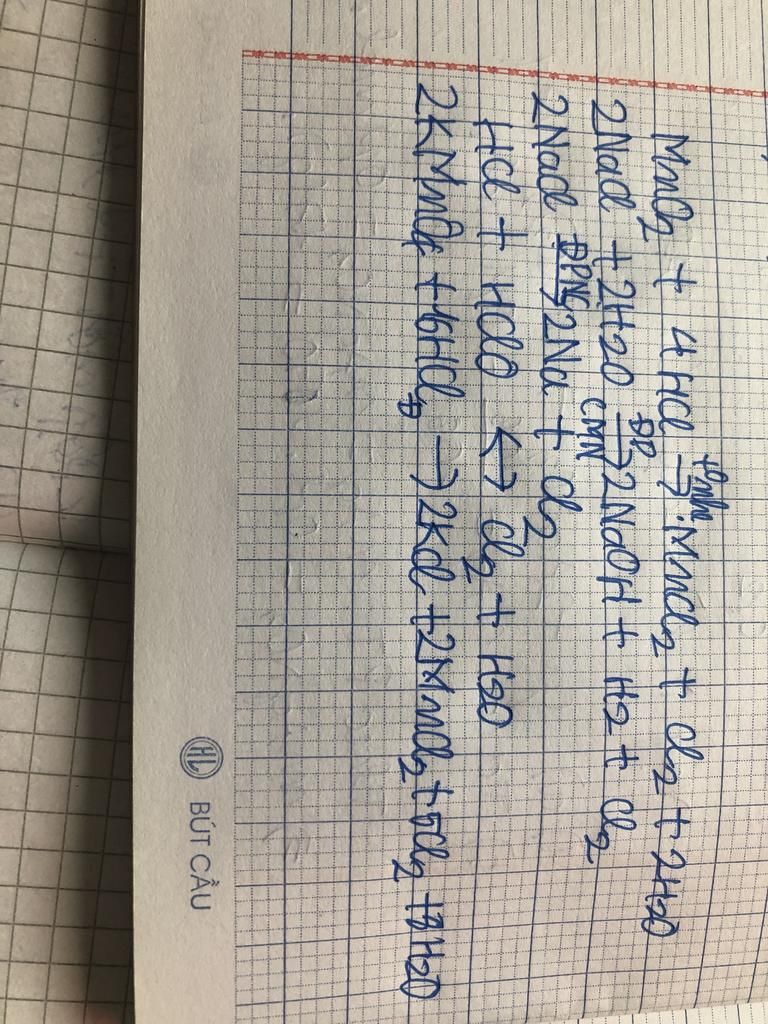 MnO2 + 4HCl → MnCl2 + Cl2 + 2H2O
2NaCl + 2H2O ĐP → CMN 2NaOH + H2 + Cl2
2NaCl ĐPNC → 2Na + Cl2
HCl + HClO ↔ Cl2 + H2O
2KMnO4 + 16HCl → 2KCl + 2MnCl2 + 5Cl2 + 8H2O
HL BÚT CẦU